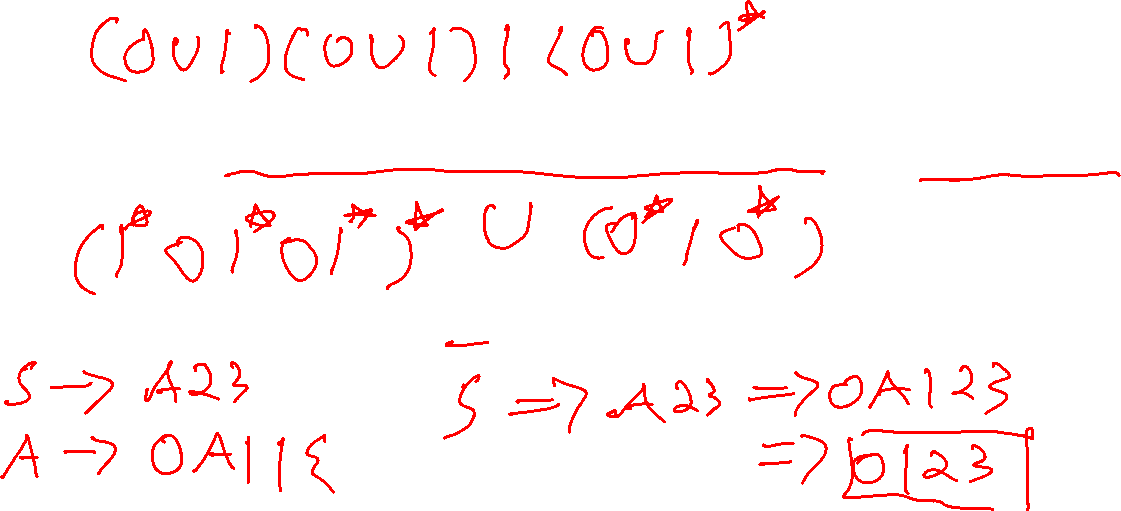 (0∪1)(0∪1)1(0∪1)*
(1*01*01*)* ∪ (0*10*)
S → A23
A → 0A1|ε
S ⇒ A23 ⇒ 0A123
⇒ 0123